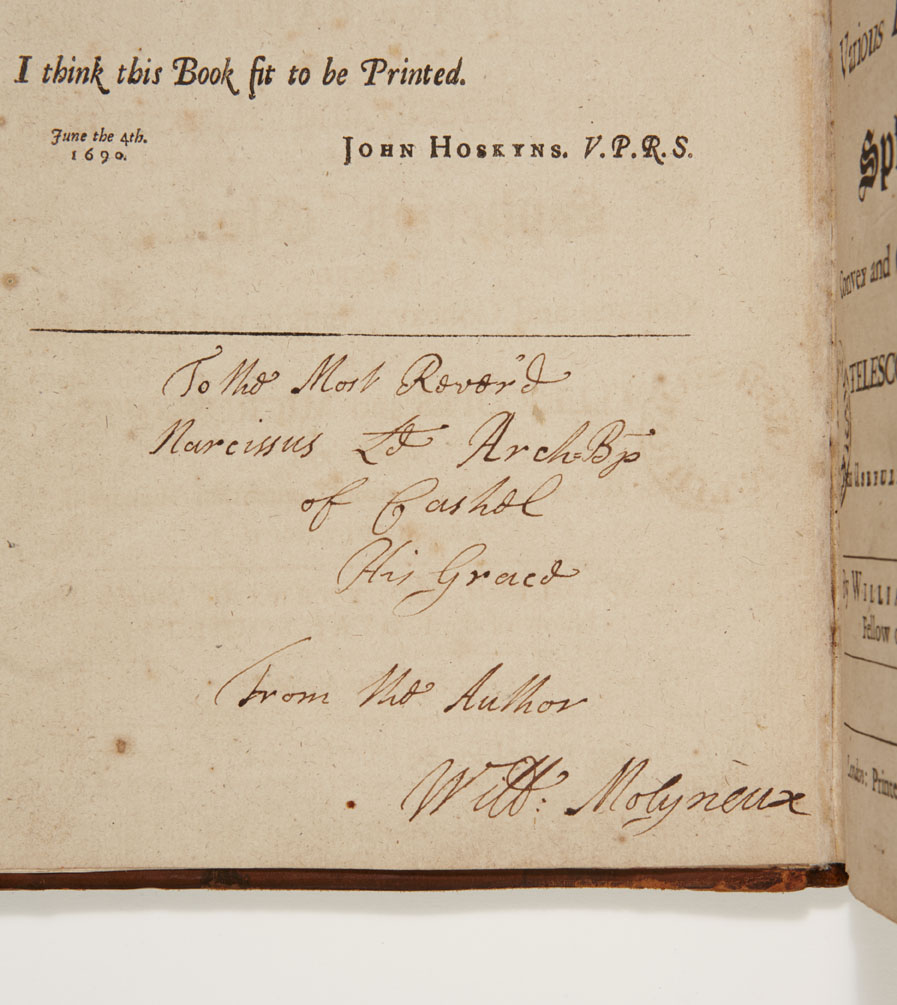 I think this Book fit to be Printed.
June the 4th.
1690.
JOHN HOSKYNS. V.P.R.S.
To the Most Rever'd
Narcissus Ld Arch-Bp
of Cashel
His Grace
From the Author
Will: Molyneux
Various
Convex and
TELESCO
USEFUL
By WILLIA
Fellow
London: Printe